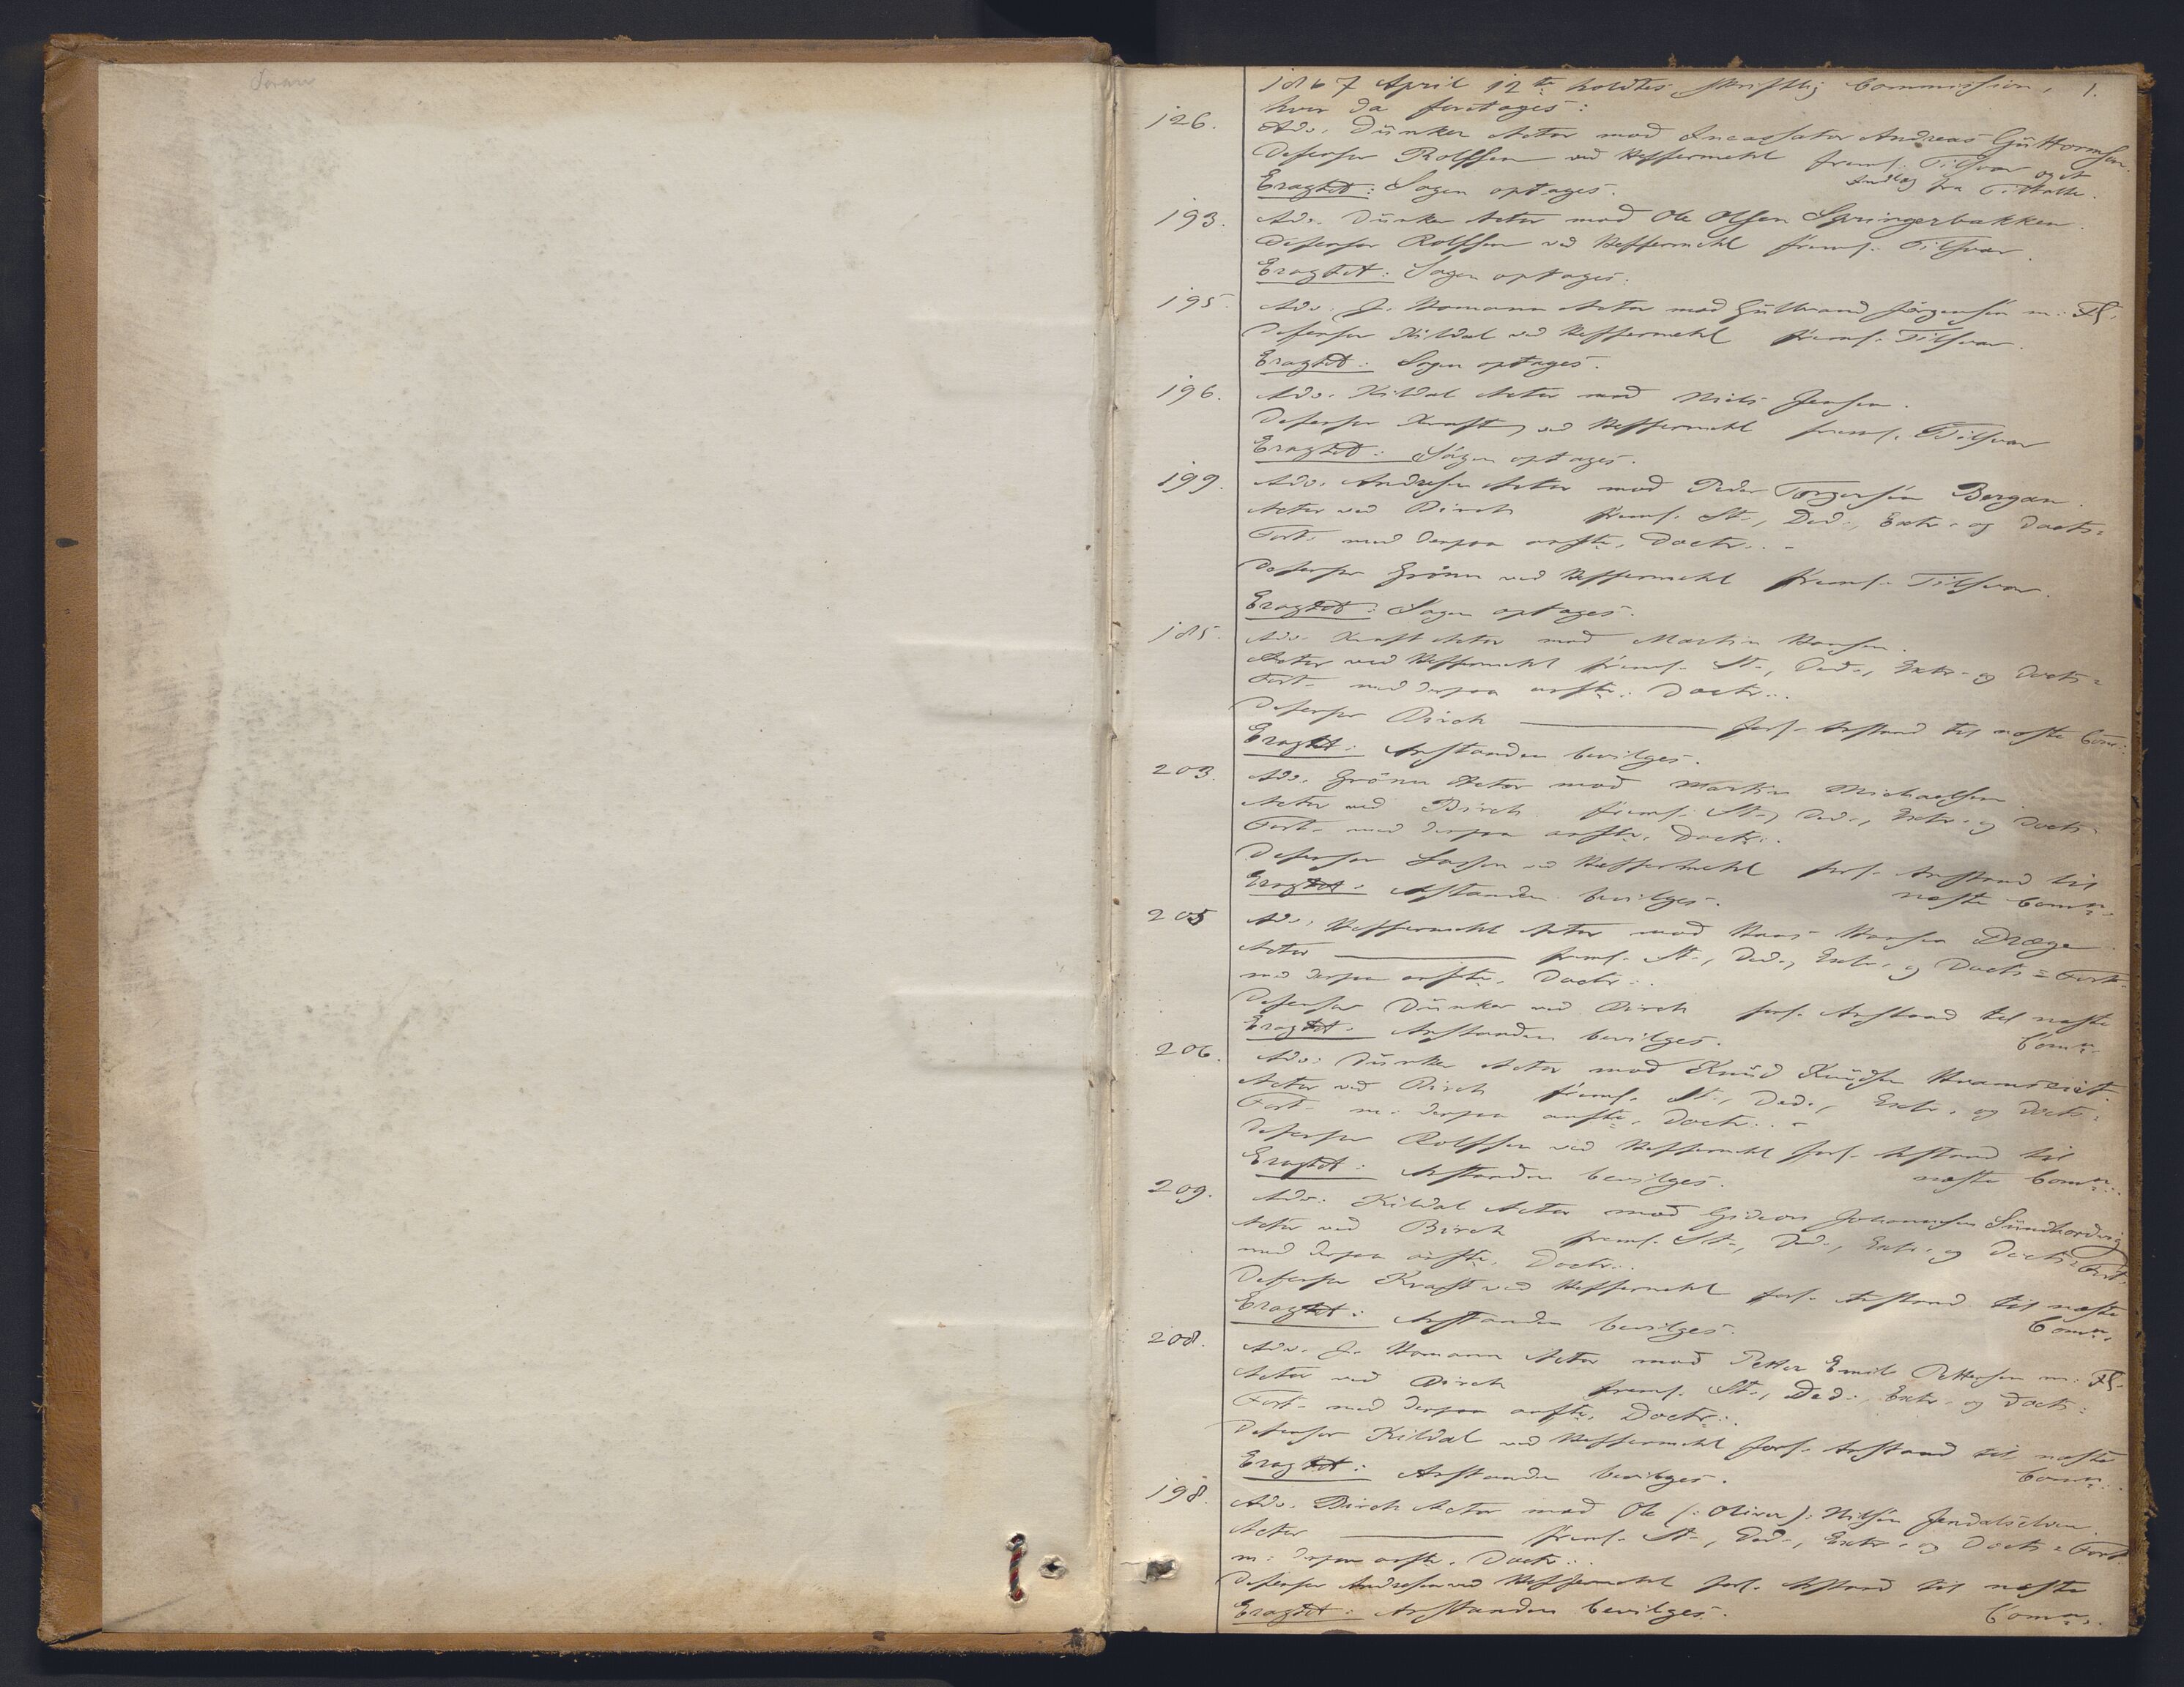 1867 April 12te holdtes skriftlig Commission, 1.
hvor da foretages:
126. Adv. Dunker Actor mod Incassator Andreas Guttormsen.
Defensor Rolffsen ved Heffermehl freml. Tilsvar og et
Indlæg fra Tiltalte.
Eragtet: Sagen optages.
193. Adv. Dunker Actor mod Ole Olsen Springerbakken.
Defensor Rolffsen ved Heffermehl freml. Tilsvar.
Eragtet: Sagen optages.
195. Adv. J. Homann Actor mod Gulbrand Jörgensen m. Fl.
Defensor Kildal ved Heffermehl freml. Tilsvar.
Eragtet: Sagen optages.
196. Adv. Kildal Actor mod Niels Jensen.
Defensor Kraft ved Heffermehl freml. Tilsvar
Eragtet: Sagen optages.
199. Adv. Andresen Actor mod Peder Torgersen Bergan.
Actor ved Birch freml. St., Ded., Extr. og Docts=
Fort. med derpaa Doctr.
Defensor Grönn ved Heffermehl freml. Tilsvar.
Eragtet: Sagen optages.
185. Adv. Kraft Actor mod Martin Hansen.
Actor ved Heffermehl freml. St., Ded., Extr. og Docts=
Fort. med derpaa Doctr.
Defensor Birch ——— forl. Anstand til næste Com:
Eragtet: Anstanden bevilges.
203. Adv. Grönn Actor mod Martin Michaelsen.
Actor ved Birch freml. St., Ded., Extr. og Docts=
Fort. med derpaa Doctr.
Defensor ved Heffermehl forl. Anstand til
næste Comn.
Eragtet: Anstanden bevilges.
205 Adv. Heffermehl Actor mod Hans Hansen Dræge.
Actor ——— freml. St., Ded., Extr. og Docts=Fort.
med derpaa Doctr.
Defensor Dunker ved Birch forl. Anstand til næste
Comn.
Eragtet: Anstanden bevilges.
206. Adv. Dunker Actor mod Knud Knudsen
Actor ved Birch freml. St., Ded., Extr. og Docts=
Fort. m. derpaa Doctr.
Defensor Rolffsen ved Heffermehl forl. Anstand til
næste Comn.
Eragtet: Anstanden bevilges.
209. Adv. Kildal Actor mod Gideon Johannesen
Actor ved Birch freml. St., Ded., Extr. og Docts=Fort.
med derpaa Doctr.
Defensor Kraft ved Heffermehl forl. Anstand til næste
Comn.
Eragtet: Anstanden bevilges.
208. Adv. J. Homann Actor mod Petter Emil Pettersen m. Fl.
Actor ved Birch freml. St., Ded., Extr. og Docts=
Fort. med derpaa Doctr.
Defensor Kildal ved Heffermehl forl. Anstand til næste
Comn.
Eragtet: Anstanden bevilges.
198. Adv. Birch Actor mod Ole (: Oliver): Nilsen
Actor ——— freml. St., Ded., Extr. og Docts=Fort.
m. derpaa Doctr.
Defensor Andresen ved Heffermehl forl. Anstand til næste
Comn.
Eragtet: Anstanden bevilges.